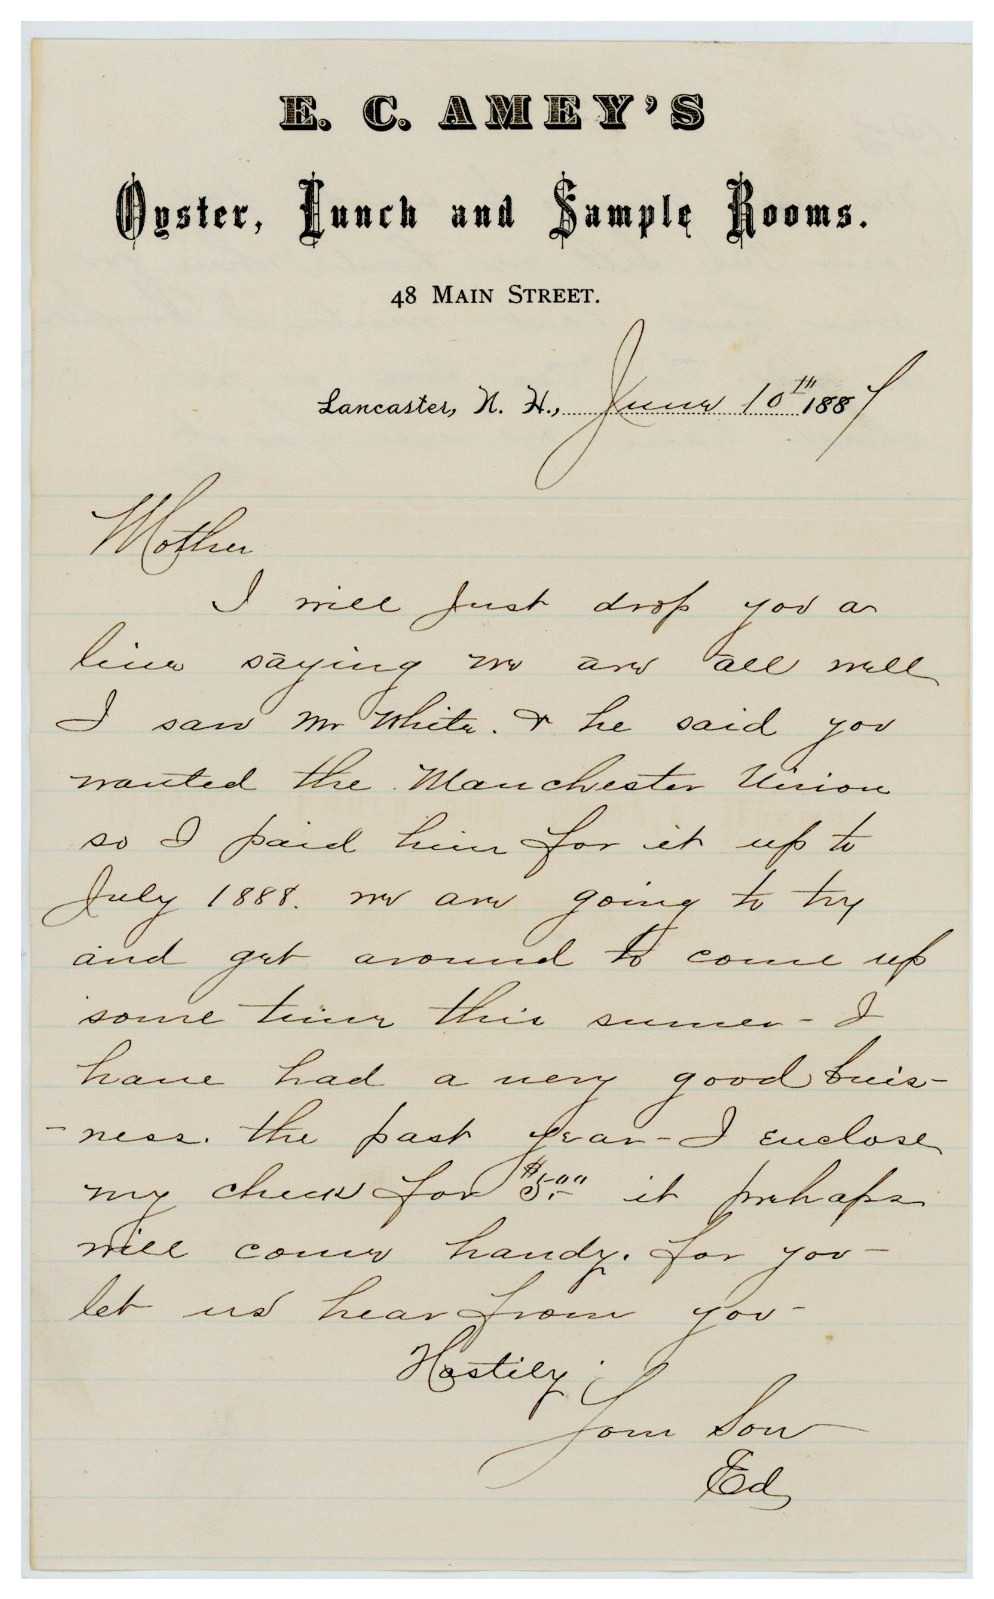 E. C. AMEY'S
Oyster, Lunch and Sample Rooms.
48 MAIN STREET.
Lancaster, N. H., June 10th 1887
Mother
I will Just drop you a
line saying we are all well
I saw Mr White. & he said you
wanted the Manchester Union
so I paid him for it up to
July 1888. we are going to try
and get around to come up
some time this sumer - I
have had a very good buis-
-ness. the past year - I enclose
my check for $5.00 it perhaps
will come handy. for you -
let us hear from you -
Hastily.
Your Son
Ed